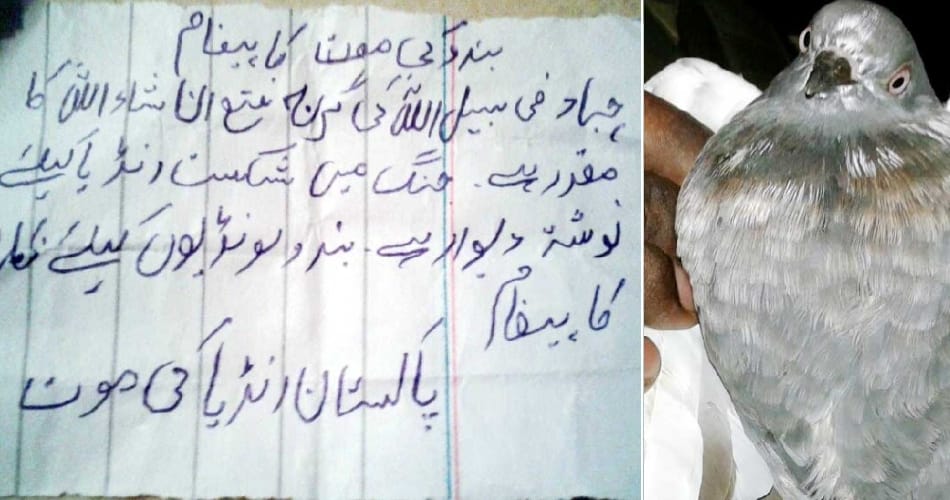 ہندو کی موت کا پیغام
جہاد فی سبیل اللہ کی گرج فتح ان شاء اللہ کا
مقدر ہے۔ جنگ میں شکست انڈیا کیلئے
نوشتہ دیوار ہے۔ ہندو لونڈیوں کیلئے
کا پیغام
پاکستان انڈیا کی موت